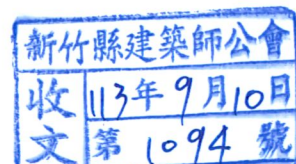 新竹縣建築師公會
收文
113年9月10日
第1094號